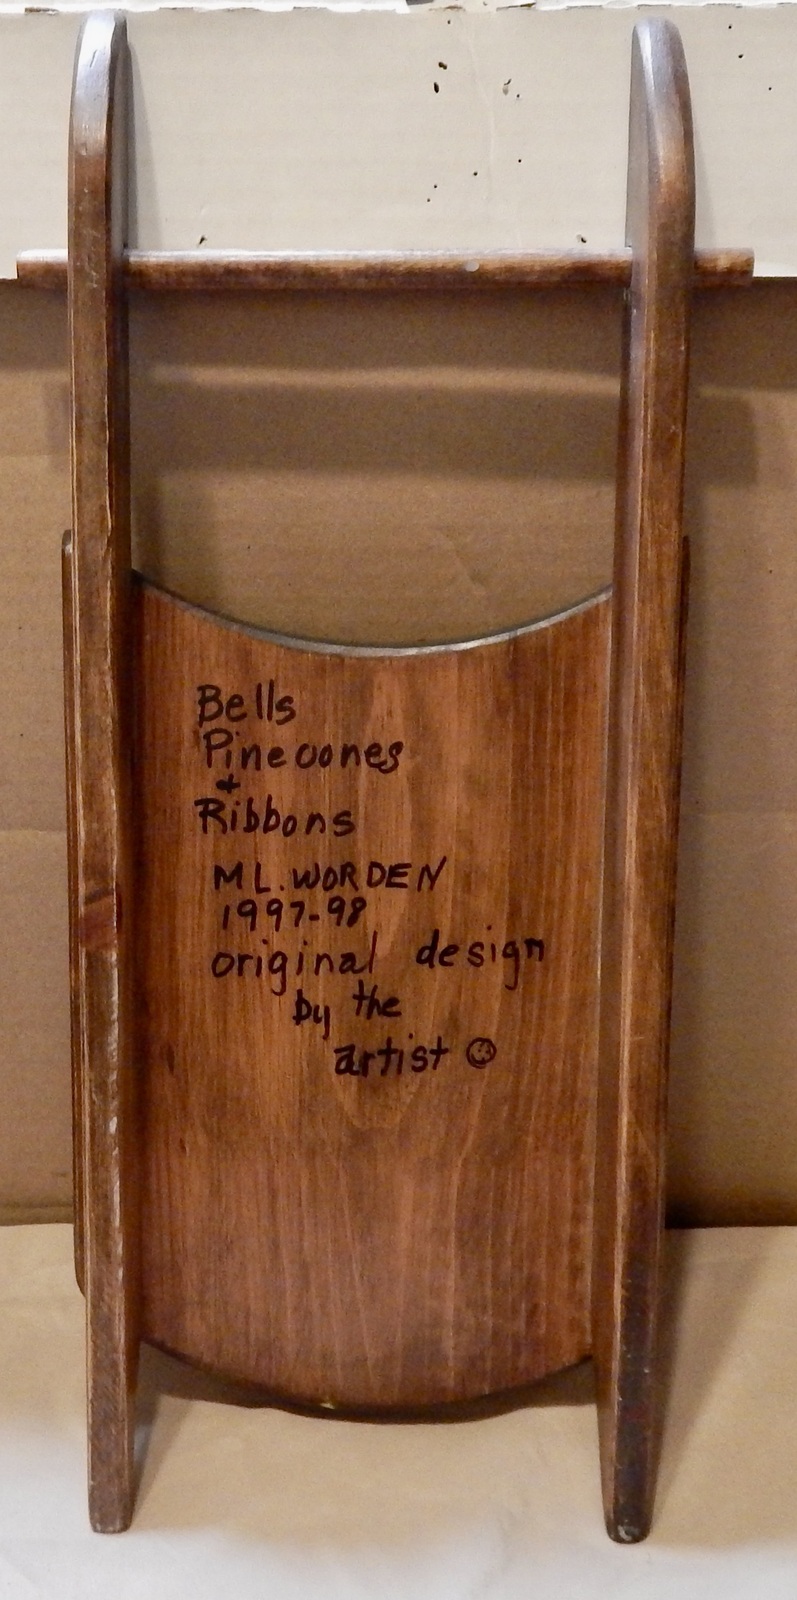 Bells
Pinecones
+
Ribbons
M L. WORDEN
1997-98
original design
by the
artist ☺